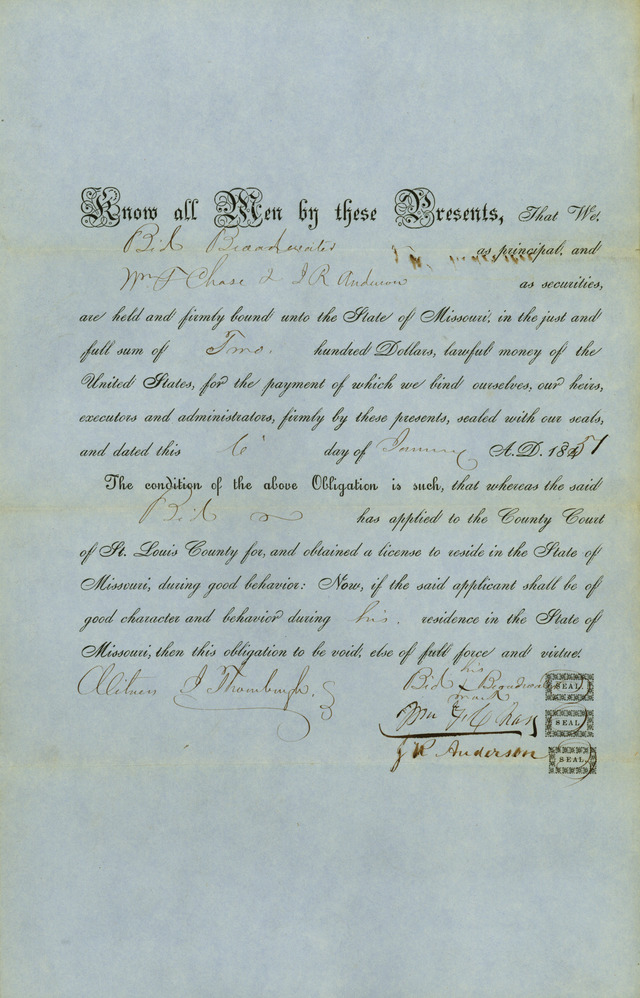 Know all Men by these Presents, That We,
Bird Broadwater as principal, and
Wm F Chase & J R Anderson as securities,
are held and firmly bound unto the State of Missouri, in the just and
full sum of Two. hundred Dollars, lawful money of the
United States, for the payment of which we bind ourselves, our heirs,
executors and administrators, firmly by these presents, sealed with our seals,
and dated this 6 day of January A.D. 1851
The condition of the above Obligation is such, that whereas the said
Bird has applied to the County Court
of St. Louis County for, and obtained a license to reside in the State of
Missouri, during good behavior: Now, if the said applicant shall be of
good character and behavior during his. residence in the State of
Missouri, then this obligation to be void, else of full force and virtue.
Witness J Thornburgh.
his
Bird + Broadwater SEAL.
mark
Wm F Chase SEAL.
J R Anderson SEAL.